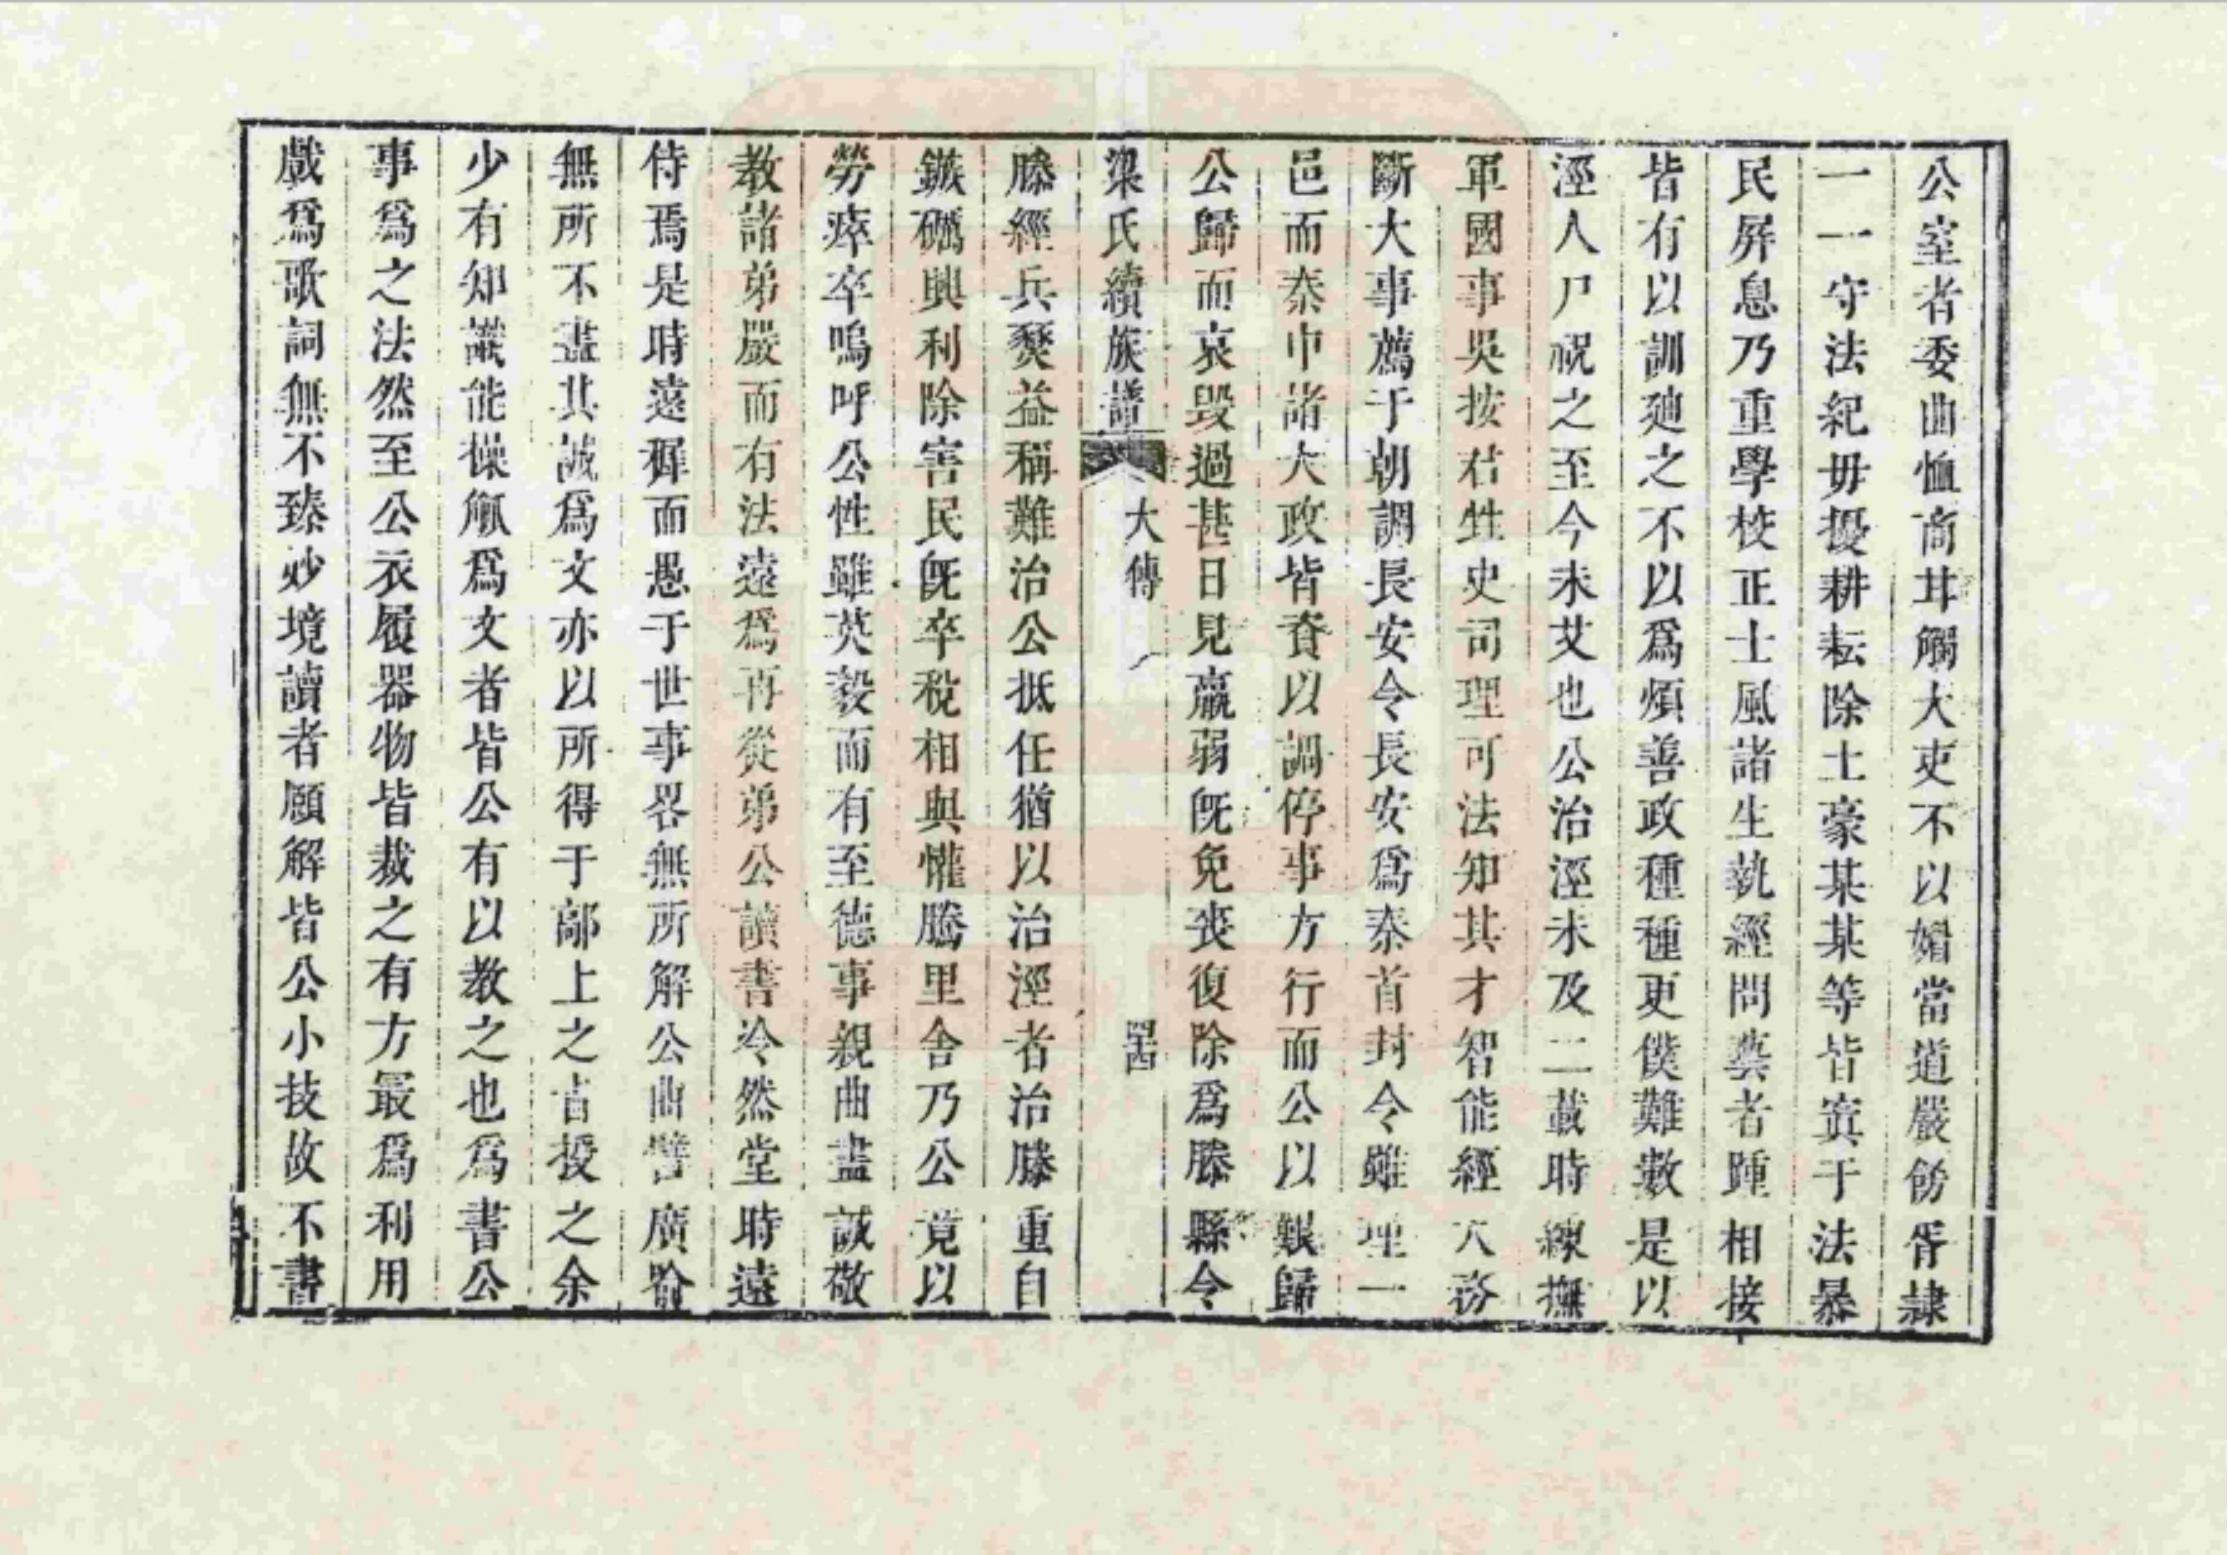 公室者委曲恤商甘觸大吏不以媚當道嚴飭胥隷
一一守法紀毋擾耕耘除土豪某某等皆寘于法暴
民屏息乃重學校正士風諸生執經問業者踵相接
皆有以訓廸之不以爲煩善政種種更僕難數是以
涇人尸祝之至今未艾也公治涇未及二載時練撫
軍國事吳按君甡史司理可法知其才智能經大務
斷大事薦于朝調長安令長安爲秦首封令雖理一
邑而秦中諸大政皆資以調停事方行而公以艱歸
公歸而哀毀過甚日見羸弱旣免喪復除爲滕縣令
梁氏續族譜 大傳 四四
滕經兵燹益稱難治公抵任猶以治涇者治滕重自
鏃礪興利除害民旣卒稅相與懽騰里舍乃公竟以
勞瘁卒嗚呼公性雖英毅而有至德事親曲盡誠敬
教諸弟嚴而有法遠爲再從弟公讀書冷然堂時遠
侍焉是時遠穉而愚于世事畧無所解公曲譬廣喻
無所不盡其誠爲文亦以所得于鄗上之旨授之余
少有知識能操觚爲文者皆公有以教之也爲書公
事爲之法然至公衣履器物皆裁之有方最爲利用
戲爲歌詞無不臻妙境讀者願解皆公小技故不書